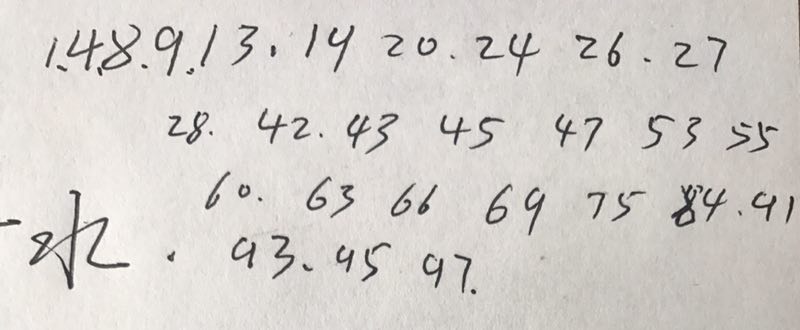 1.4.8.9.13.14 20.24 26.27
28. 42.43 45 47 53 55
60. 63 66 69 75 84.91
水. 93.95 97.